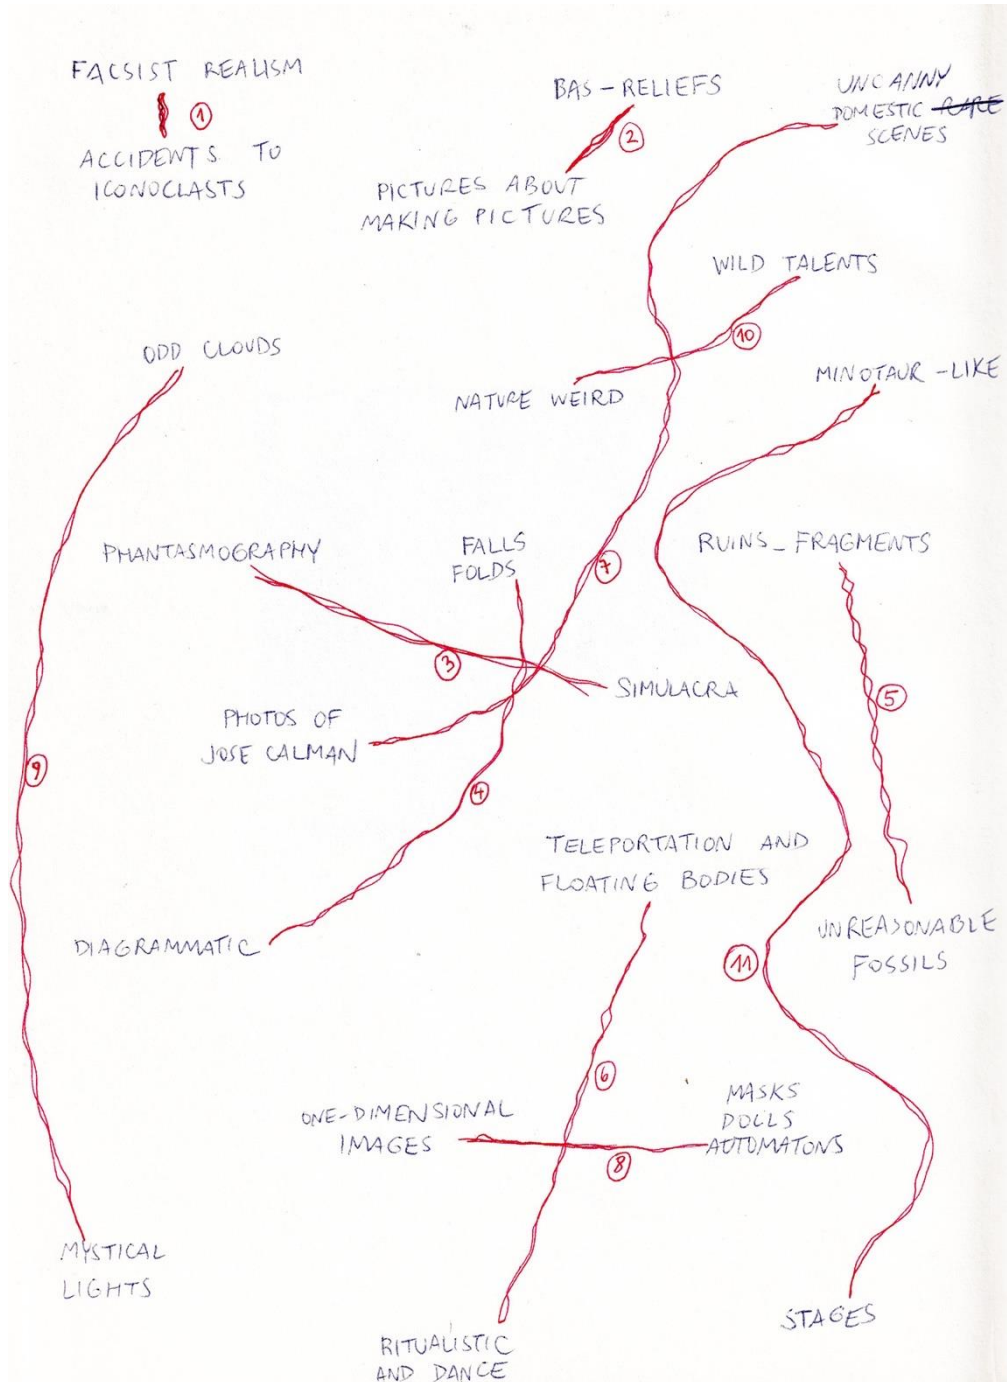 FACSIST REALISM
1
ACCIDENTS TO
ICONOCLASTS
BAS-RELIEFS
2
PICTURES ABOUT
MAKING PICTURES
UNCANNY
DOMESTIC RARE
SCENES
WILD TALENTS
10
NATURE WEIRD
ODD CLOUDS
MINOTAUR-LIKE
PHANTASMOGRAPHY
FALLS
FOLDS
7
RUINS_FRAGMENTS
3
SIMULACRA
5
PHOTOS OF
JOSE CALMAN
9
4
TELEPORTATION AND
FLOATING BODIES
DIAGRAMMATIC
11
UNREASONABLE
FOSSILS
6
ONE-DIMENSIONAL
IMAGES
MASKS
DOLLS
AUTOMATONS
8
MYSTICAL
LIGHTS
STAGES
RITUALISTIC
AND DANCE